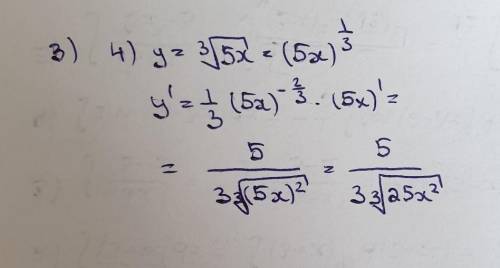 3) 4) y = ∛5x = (5x)^(1/3)
y' = 1/3 (5x)^(-2/3) · (5x)' =
= 5/(3∛(5x)²) = 5/(3∛25x²)